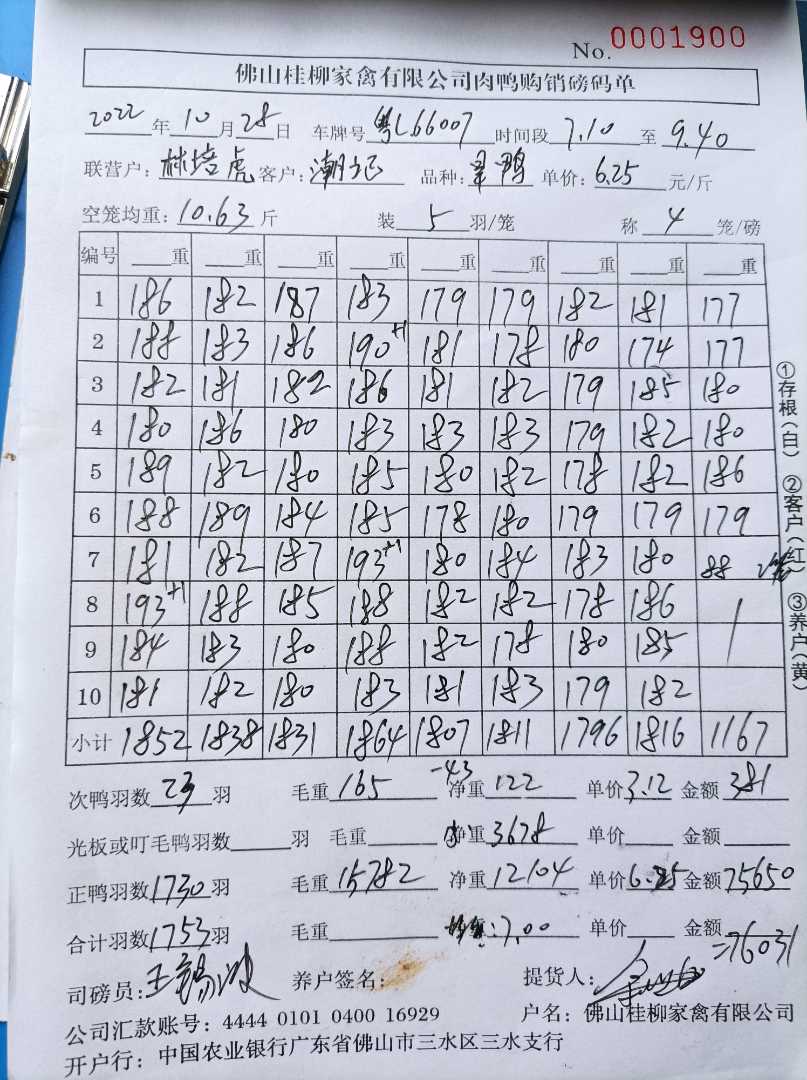 No. 0001900
佛山桂柳家禽有限公司肉鸭购销磅码单
2022年10月28日 车牌号粤L66007时间段7.10至9.40
联营户:林培虎客户: 品种: 鸭 单价:6.25元/斤
空笼均重:10.63斤 装5羽/笼 称4笼/磅
编号 重 重 重 重 重 重 重 重 重
1 186 182 187 183 179 179 182 181 177
2 188 183 186 190+1 181 178 180 174 177
3 182 181 182 186 181 182 179 185 180
4 180 186 180 183 183 183 179 182 180
5 189 182 180 185 180 182 178 182 186
6 188 189 184 185 178 180 179 179 179
7 181 182 187 193+1 180 184 183 180 88 2笼
8 193+1 188 185 188 182 182 178 186
9 184 183 180 188 182 178 180 185
10 181 182 180 183 181 183 179 182
小计 1852 1838 1831 1864 1807 1811 1796 1816 1167
次鸭羽数23羽 毛重165 -43 净重122 单价3.12 金额381
光板或叮毛鸭羽数 羽 毛重 净重3678 单价 金额
正鸭羽数1730羽 毛重15782 净重12104 单价6.25 金额75650
合计羽数1753羽 毛重 :7.00 单价 金额
=76031
司磅员:王锡波 养户签名: 提货人:
公司汇款账号:4444 0101 0400 16929 户名:佛山桂柳家禽有限公司
开户行:中国农业银行广东省佛山市三水区三水支行
①存根(白) ②客户(红) ③养户(黄)